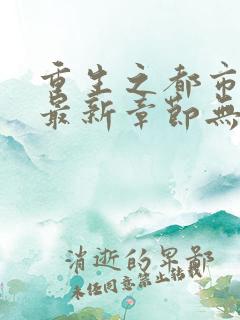 重生之都市
最新章節無
消逝的果鄙
未经同意禁止转载